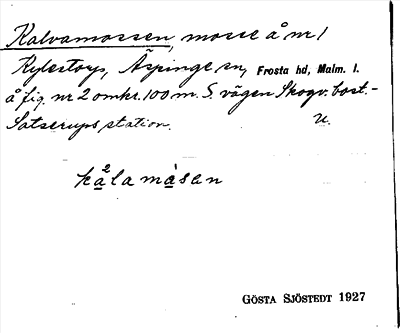 Kalvamossen, mosse å nr 1
Rylestorp, Äspinge sn, Frosta hd, Malm. l.
å fig. nr 2 omkr. 100 m. S. vägen Skogv. bost.-
Satserups station. U.
kalamåsen
GÖSTA SJÖSTEDT 1927